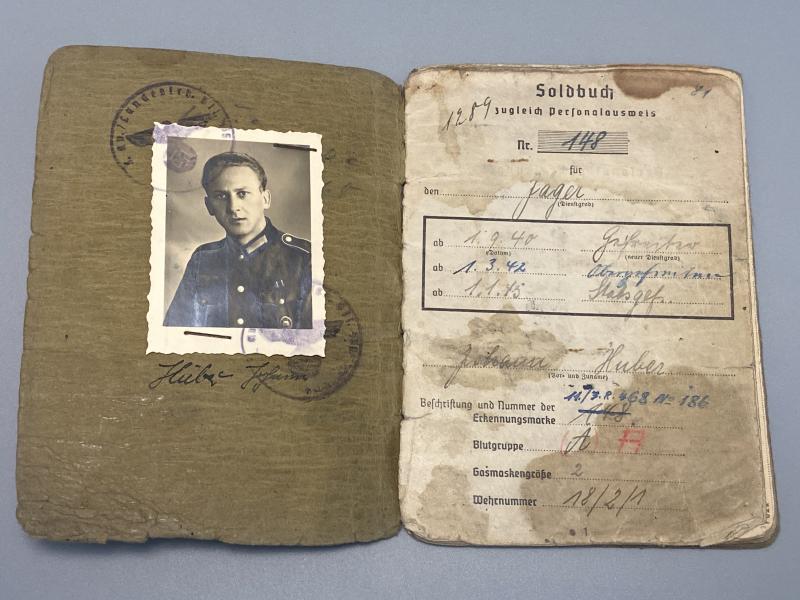 Huber Johann
Soldbuch
81
1289
zugleich Personalausweis
Nr. 148
für
den Jäger
(Dienstgrad)
ab 1.9.40 Gefreiter
(Datum) (neuer Dienstgrad)
ab 1.3.42 Obergefreiter
ab 1.1.45 Stabsgefr.
Johann Huber
(Vor- und Zuname)
11./J.R. 468 N= 186
Beschriftung und Nummer der
Erkennungsmarke 148.
Blutgruppe A
Gasmaskengröße 2
Wehrnummer 18/2/1
1